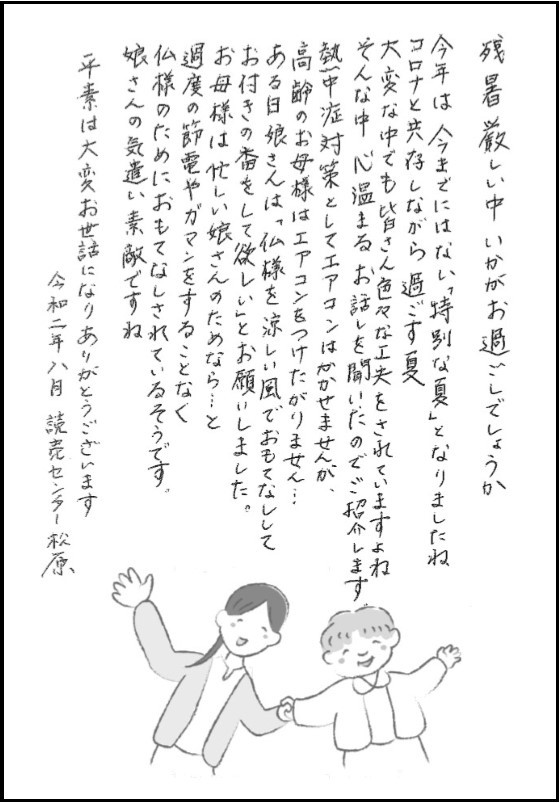 残暑厳しい中 いかがお過ごしでしょうか
今年は 今までにはない「特別な夏」となりましたね
コロナと共存しながら 過ごす夏
大変な中でも 皆さん色々な工夫をされていますよね
そんな中 心温まる お話しを聞いたのでご紹介します。
熱中症対策としてエアコンはかかせませんが、
高齢のお母様はエアコンをつけたがりません…
ある日 娘さんは、「仏様を涼しい風でおもてなしして
お付きの番をして欲しい」とお願いしました。
お母様は 忙しい娘さんのためなら…と
過度の節電やガマンをすることなく
仏様のためにおもてなしされているそうです。
娘さんの気遣い素敵ですね
平素は大変お世話になりありがとうございます
令和二年 八月 読売センター松原